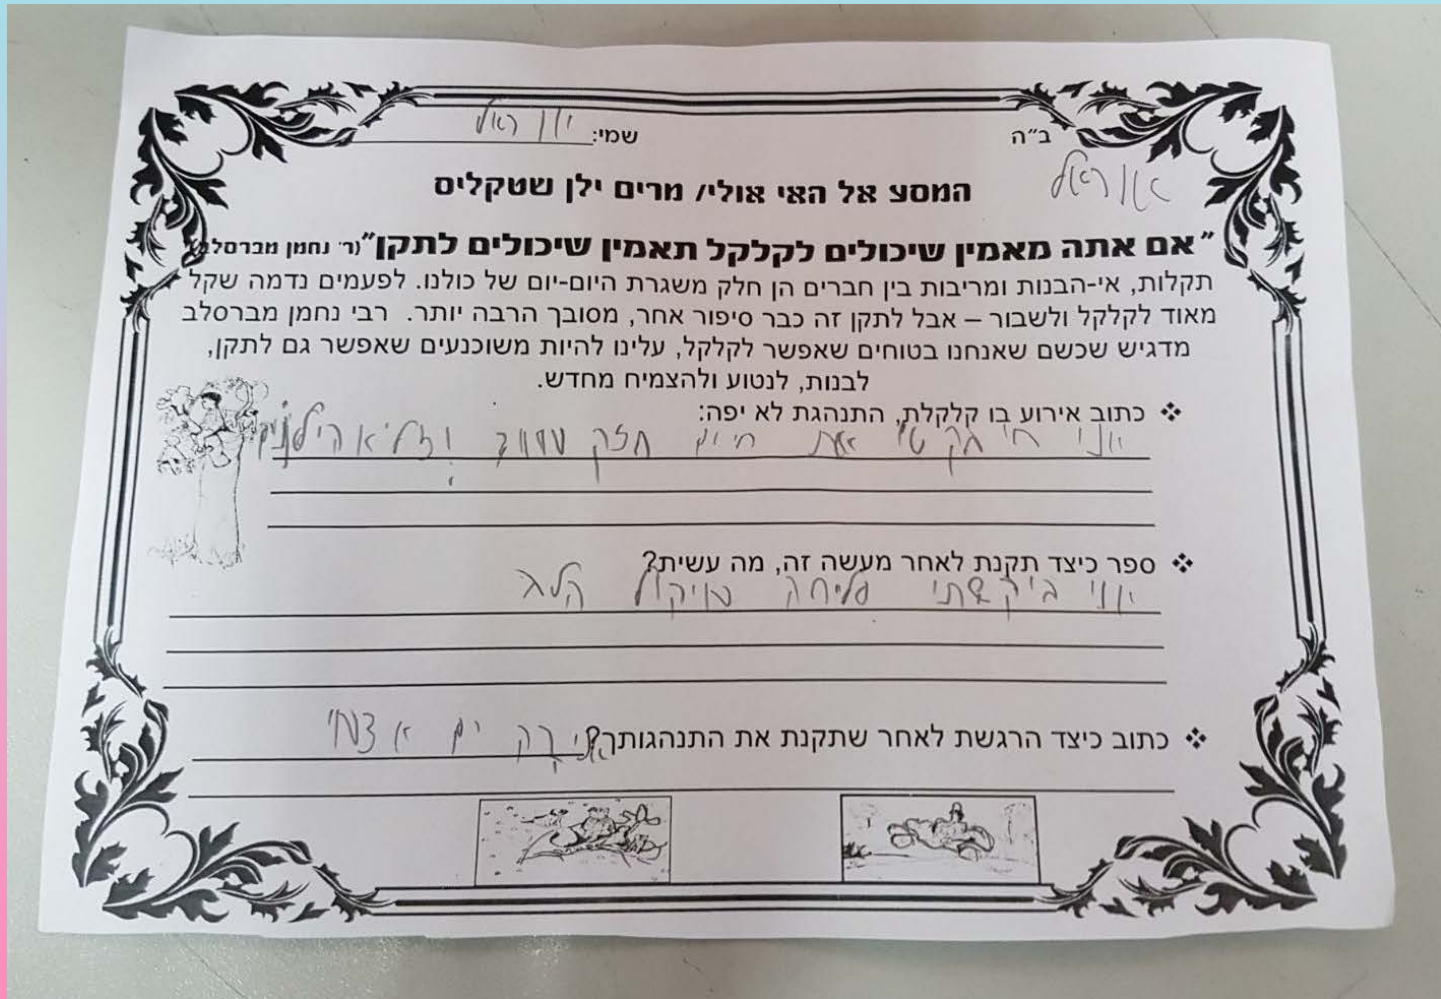 ב״ה
שמי: און ראל
און ראל
המסע אל האי אולי/ מרים ילן שטקליס
"אם אתה מאמין שיכולים לקלקל תאמין שיכולים לתקן" (ר' נחמן מברסלב)
תקלות, אי-הבנות ומריבות בין חברים הן חלק משגרת היום-יום של כולנו. לפעמים נדמה שקל
מאוד לקלקל ולשבור – אבל לתקן זה כבר סיפור אחר, מסובך הרבה יותר. רבי נחמן מברסלב
מדגיש שכשם שאנחנו בטוחים שאפשר לקלקל, עלינו להיות משוכנעים שאפשר גם לתקן,
לבנות, לנטוע ולהצמיח מחדש.
❖ כתוב אירוע בו קלקלת, התנהגת לא יפה:
אני את חזק
❖ ספר כיצד תקנת לאחר מעשה זה, מה עשית?
אני ביקשתי סליחה מיקול הלב
❖ כתוב כיצד הרגשת לאחר שתקנת את התנהגותך?